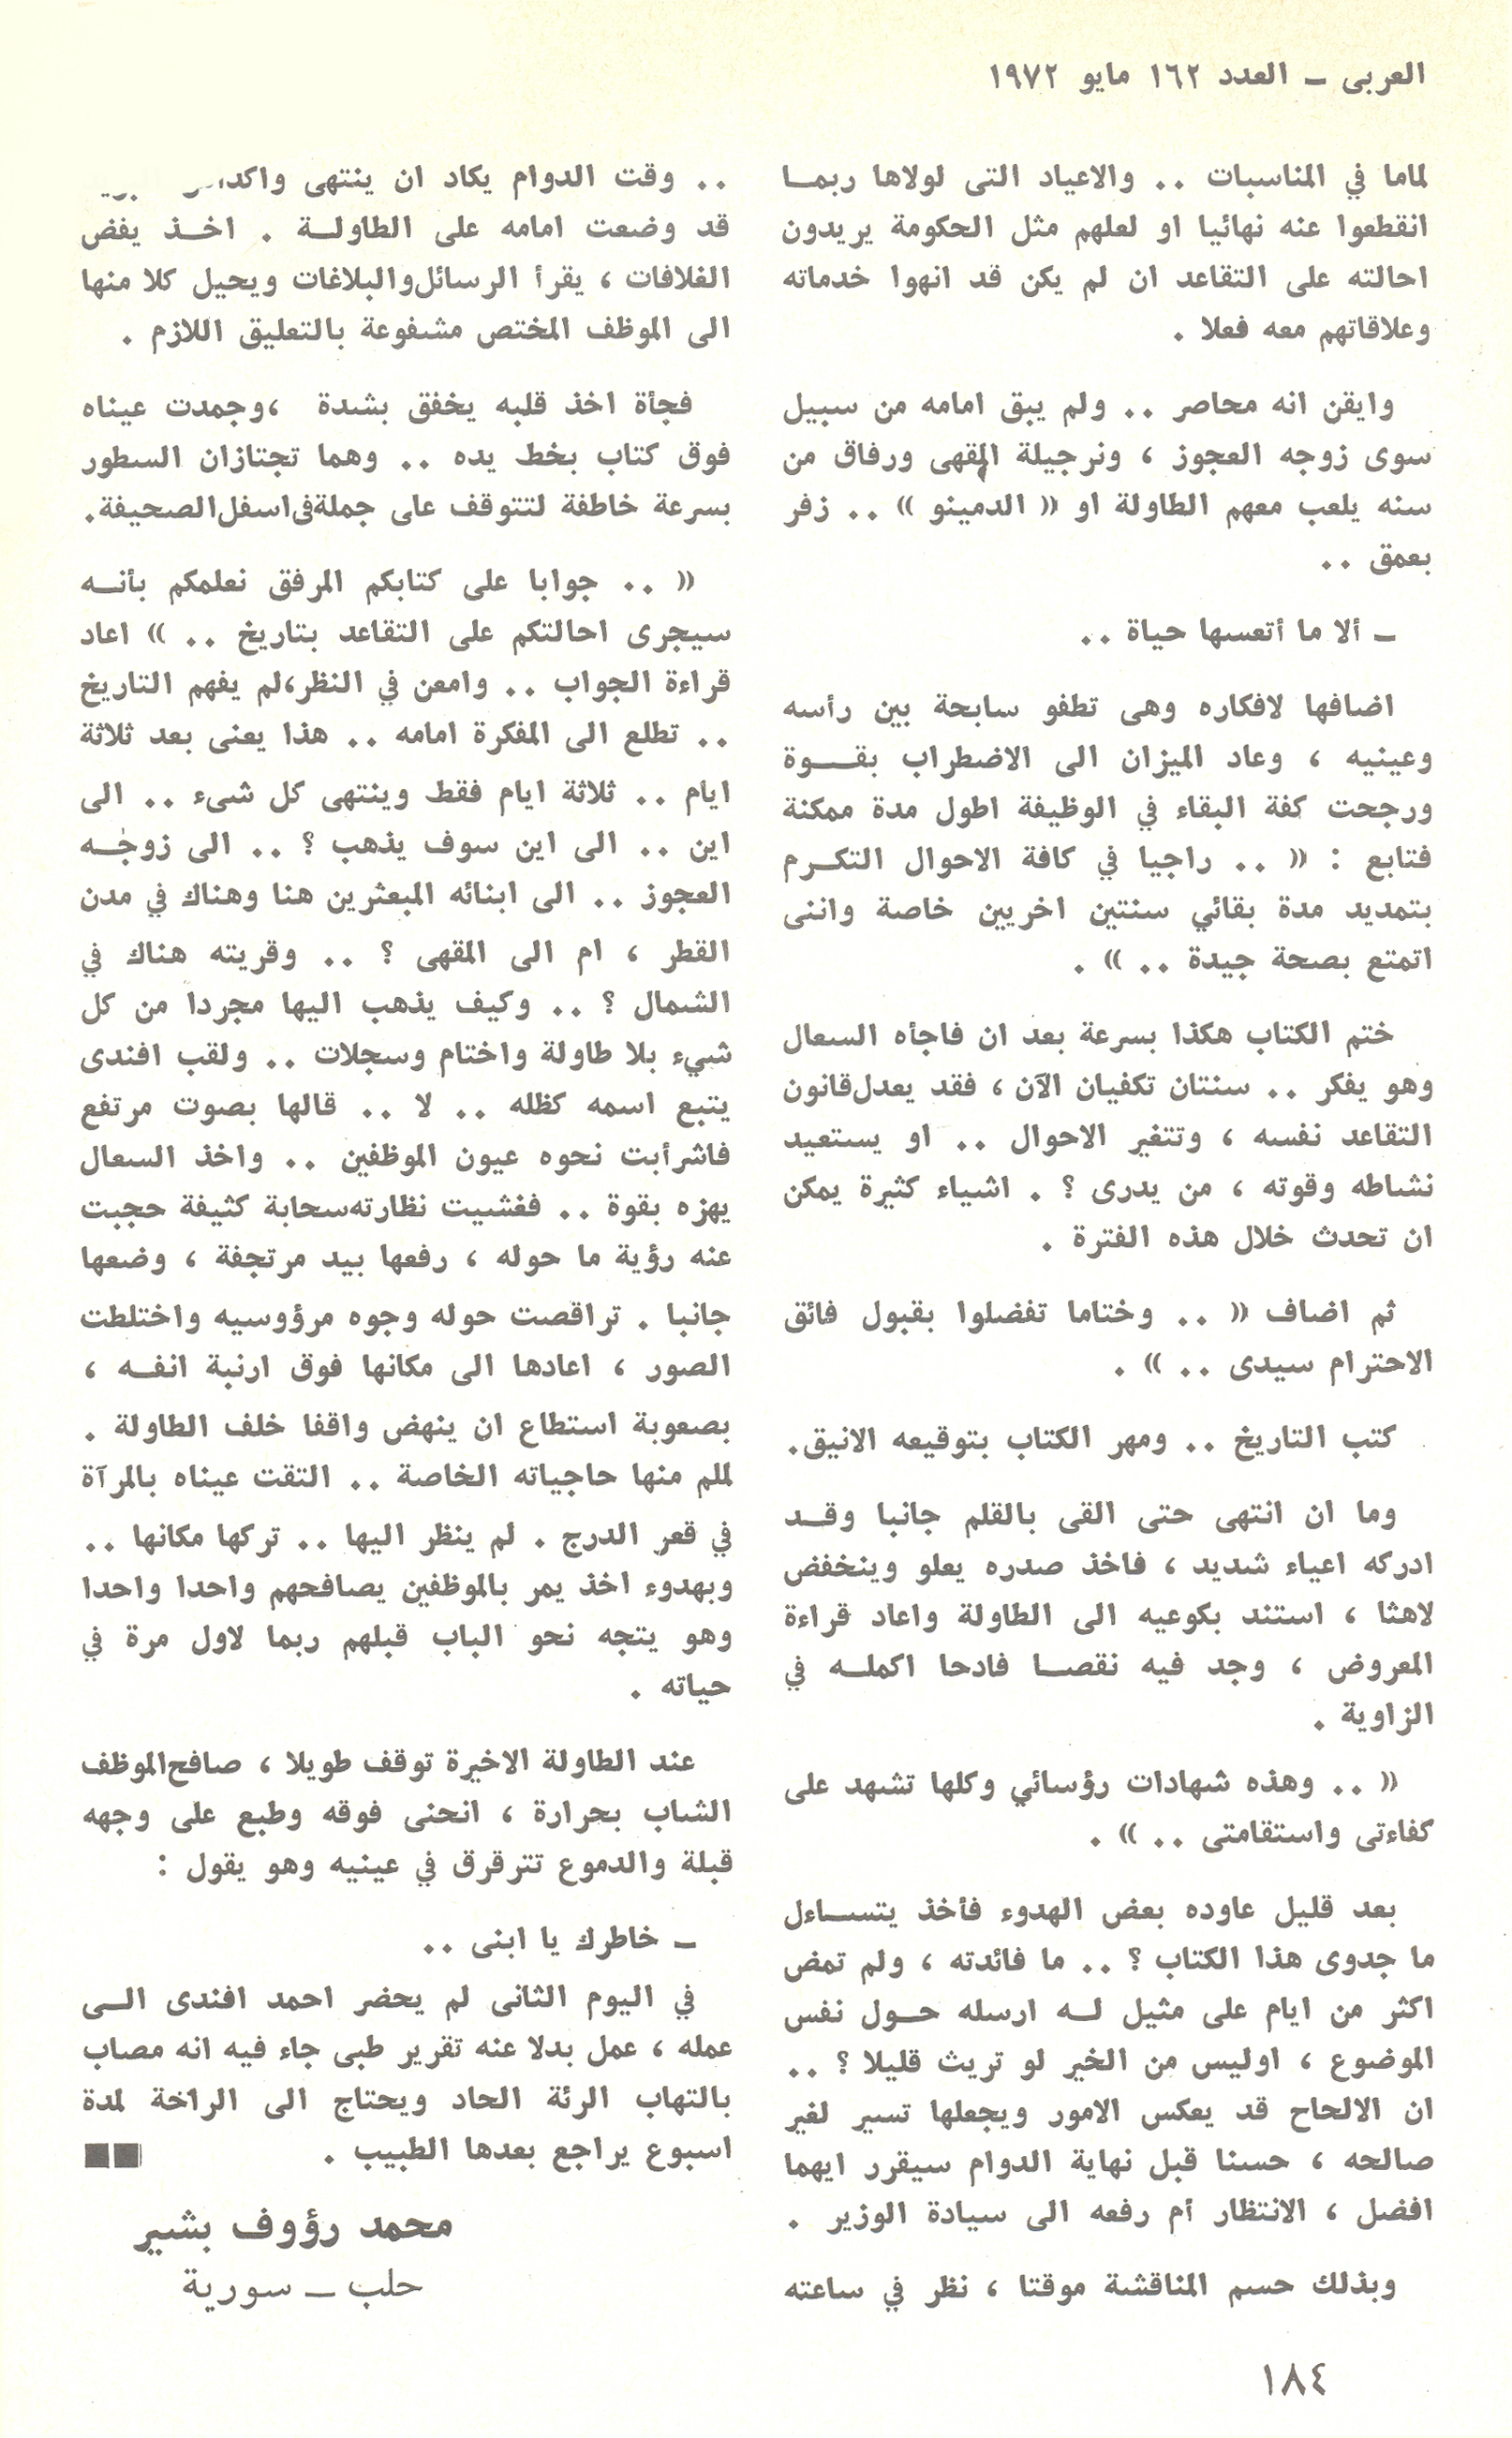 العربى ــ العدد ١٦٢ مايو ١٩٧٢
لماما في المناسبات .. والاعياد التى لولاها ربما
انقطعوا عنه نهائيا او لعلهم مثل الحكومة يريدون
احالته على التقاعد ان لم يكن قد انهوا خدماته
وعلاقاتهم معه فعلا .
وايقن انه محاصر .. ولم يبق امامه من سبيل
سوى زوجه العجوز ، ونرجيلة المقهى ورفاق من
سنه يلعب معهم الطاولة او « الدمينو » .. زفر
بعمق ..
ــ ألا ما أتعسها حياة ..
اضافها لافكاره وهى تطفو سابحة بين رأسه
وعينيه ، وعاد الميزان الى الاضطراب بقوة
ورجحت كفة البقاء في الوظيفة اطول مدة ممكنة
فتابع : « .. راجيا في كافة الاحوال التكرم
بتمديد مدة بقائي سنتين اخريين خاصة واننى
اتمتع بصحة جيدة .. » .
ختم الكتاب هكذا بسرعة بعد ان فاجأه السعال
وهو يفكر .. سنتان تكفيان الآن ، فقد يعدل قانون
التقاعد نفسه ، وتتغير الاحوال .. او يستعيد
نشاطه وقوته ، من يدرى ؟ . اشياء كثيرة يمكن
ان تحدث خلال هذه الفترة .
ثم اضاف « .. وختاما تفضلوا بقبول فائق
الاحترام سيدى .. » .
كتب التاريخ .. ومهر الكتاب بتوقيعه الانيق.
وما ان انتهى حتى القى بالقلم جانبا وقد
ادركه اعياء شديد ، فاخذ صدره يعلو وينخفض
لاهثا ، استند بكوعيه الى الطاولة واعاد قراءة
المعروض ، وجد فيه نقصا فادحا اكمله في
الزاوية .
« .. وهذه شهادات رؤسائي وكلها تشهد على
كفاءتى واستقامتى .. » .
بعد قليل عاوده بعض الهدوء فأخذ يتساءل
ما جدوى هذا الكتاب ؟ .. ما فائدته ، ولم تمض
اكثر من ايام على مثيل له ارسله حول نفس
الموضوع ، اوليس من الخير لو تريث قليلا ؟ ..
ان الالحاح قد يعكس الامور ويجعلها تسير لغير
صالحه ، حسنا قبل نهاية الدوام سيقرر ايهما
افضل ، الانتظار أم رفعه الى سيادة الوزير .
وبذلك حسم المناقشة موقتا ، نظر في ساعته
.. وقت الدوام يكاد ان ينتهى
قد وضعت امامه على الطاولة . اخذ يفض
الغلافات ، يقرأ الرسائل والبلاغات ويحيل كلا منها
الى الموظف المختص مشفوعة بالتعليق اللازم .
فجأة اخذ قلبه يخفق بشدة ، وجمدت عيناه
فوق كتاب بخط يده .. وهما تجتازان السطور
بسرعة خاطفة لتتوقف على جملة فى اسفل الصحيفة.
« .. جوابا على كتابكم المرفق نعلمكم بأنه
سيجرى احالتكم على التقاعد بتاريخ .. » اعاد
قراءة الجواب .. وامعن في النظر، لم يفهم التاريخ
.. تطلع الى المفكرة امامه .. هذا يعنى بعد ثلاثة
ايام .. ثلاثة ايام فقط وينتهى كل شىء .. الى
اين .. الى اين سوف يذهب ؟ .. الى زوجه
العجوز .. الى ابنائه المبعثرين هنا وهناك في مدن
القطر ، ام الى المقهى ؟ .. وقريته هناك في
الشمال ؟ .. وكيف يذهب اليها مجردا من كل
شيء بلا طاولة واختام وسجلات .. ولقب افندى
يتبع اسمه كظله .. لا .. قالها بصوت مرتفع
فاشرأبت نحوه عيون الموظفين .. واخذ السعال
يهزه بقوة .. فغشيت نظارته سحابة كثيفة حجبت
عنه رؤية ما حوله ، رفعها بيد مرتجفة ، وضعها
جانبا . تراقصت حوله وجوه مرؤوسيه واختلطت
الصور ، اعادها الى مكانها فوق ارنبة انفه ،
بصعوبة استطاع ان ينهض واقفا خلف الطاولة .
لملم منها حاجياته الخاصة .. التقت عيناه بالمرآة
في قعر الدرج . لم ينظر اليها .. تركها مكانها ..
وبهدوء اخذ يمر بالموظفين يصافحهم واحدا واحدا
وهو يتجه نحو الباب قبلهم ربما لاول مرة في
حياته .
عند الطاولة الاخيرة توقف طويلا ، صافح الموظف
الشاب بحرارة ، انحنى فوقه وطبع على وجهه
قبلة والدموع تترقرق في عينيه وهو يقول :
ــ خاطرك يا ابنى ..
في اليوم الثانى لم يحضر احمد افندى الى
عمله ، عمل بدلا عنه تقرير طبى جاء فيه انه مصاب
بالتهاب الرئة الحاد ويحتاج الى الراخة لمدة
اسبوع يراجع بعدها الطبيب .
محمد رؤوف بشير
حلب ــ سورية
١٨٤